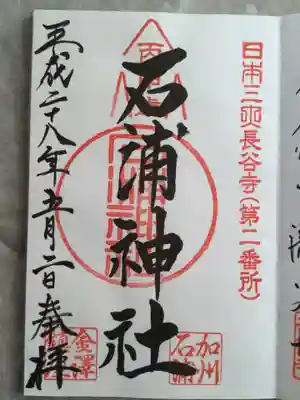 日本三所長谷寺(第二番所)
石浦神社
加州
石浦
平成二十八年五月二日奉拝